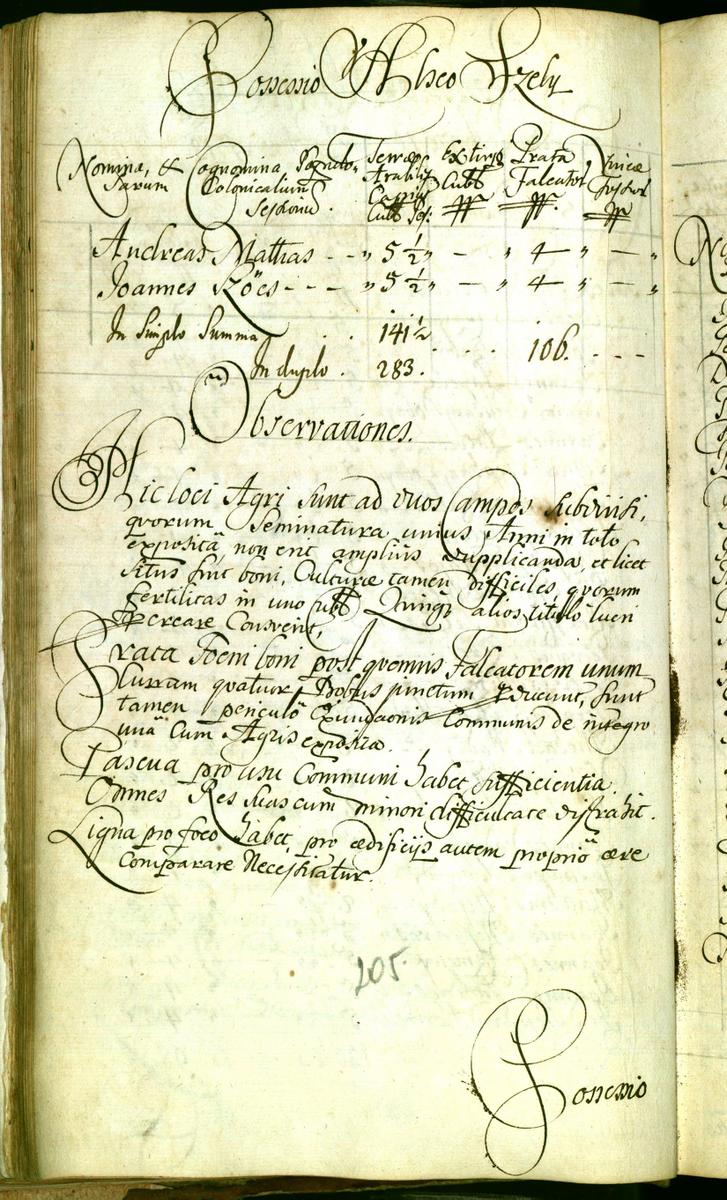 Possessio Alseo Szely
Nomina, & Cognomina Possesso- Terræ Extirp Prata Vineæ
narum Colonicalium Arabilis Cubb Falcator Fossor
Sessionū. Capaß ff. ff. ff
Cubb Pos:
Andreas Mattias - - „ 5 ½ „ - „ 4 „ - „
Joannes Köes - - - „ 5 ½ „ - „ 4 „ - „
In Simplo Summa . . 141 ½ . . 106. - - -
In duplo . 283.
Observationes.
Hic loci Agri Sunt ad duos Campos Subdivisi,
quorum Seminatura unius Anni in toto
exposita, non erit amplius dupplicanda, et licet
Situs sint boni, Culturæ tamen difficiles, quorum
fertilitas in uno Cubb Quinq alios titulo lucri
procreare Consvevit,
Prata Foeni boni post quemvis Falcatorem unum
Currum quatuor Bobus junctum educunt, sunt
tamen periculo Exundaonis Communis de integro
una Cum Agris exposita.
Pascua pro usu Communi habet Sufficientia.
Omnes Res suas cum minori difficultate distrahit.
Ligna pro foco habet, pro ædificijs autem proprio ære
Comparare Necessitatur.
205
Possessio